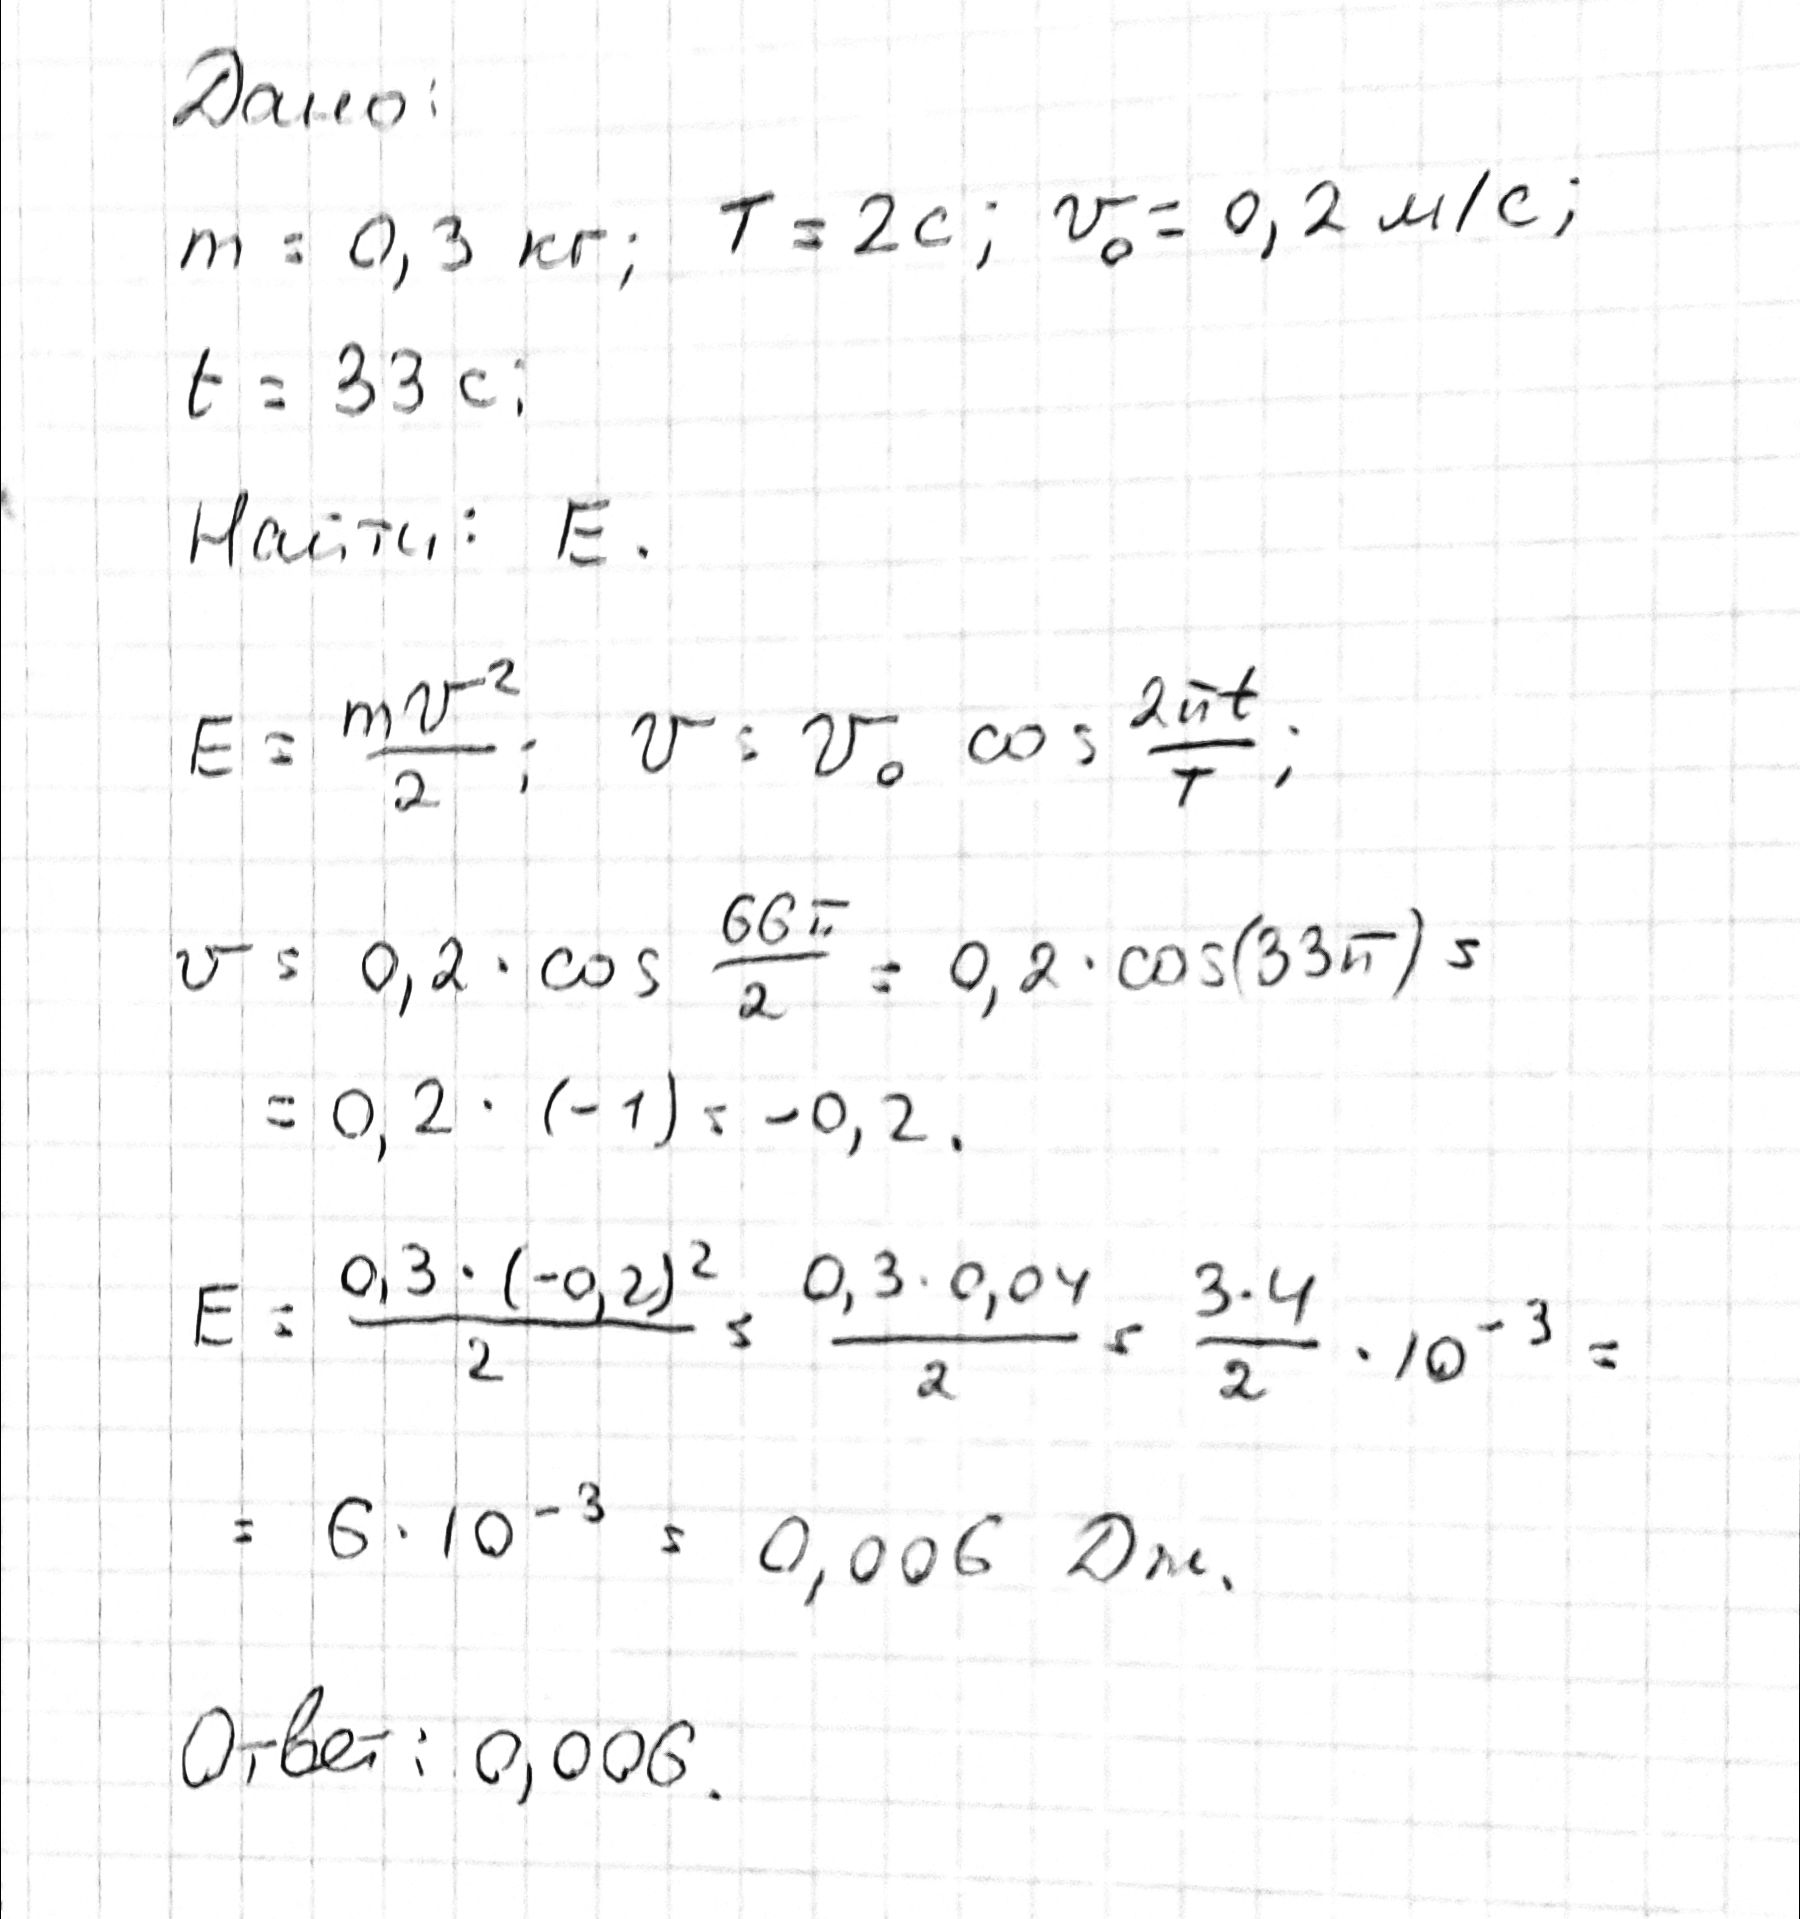 Дано:
m = 0,3 кг; T = 2с; v₀ = 0,2 м/с;
t = 33 с;
Найти: E.
E = mv²/2; v = v₀ cos 2πt/T;
v = 0,2 · cos 66π/2 = 0,2 · cos(33π) =
= 0,2 · (-1) = -0,2.
E = 0,3 · (-0,2)²/2 = 0,3 · 0,04/2 = 3·4/2 · 10⁻³ =
= 6 · 10⁻³ = 0,006 Дж.
Ответ: 0,006.